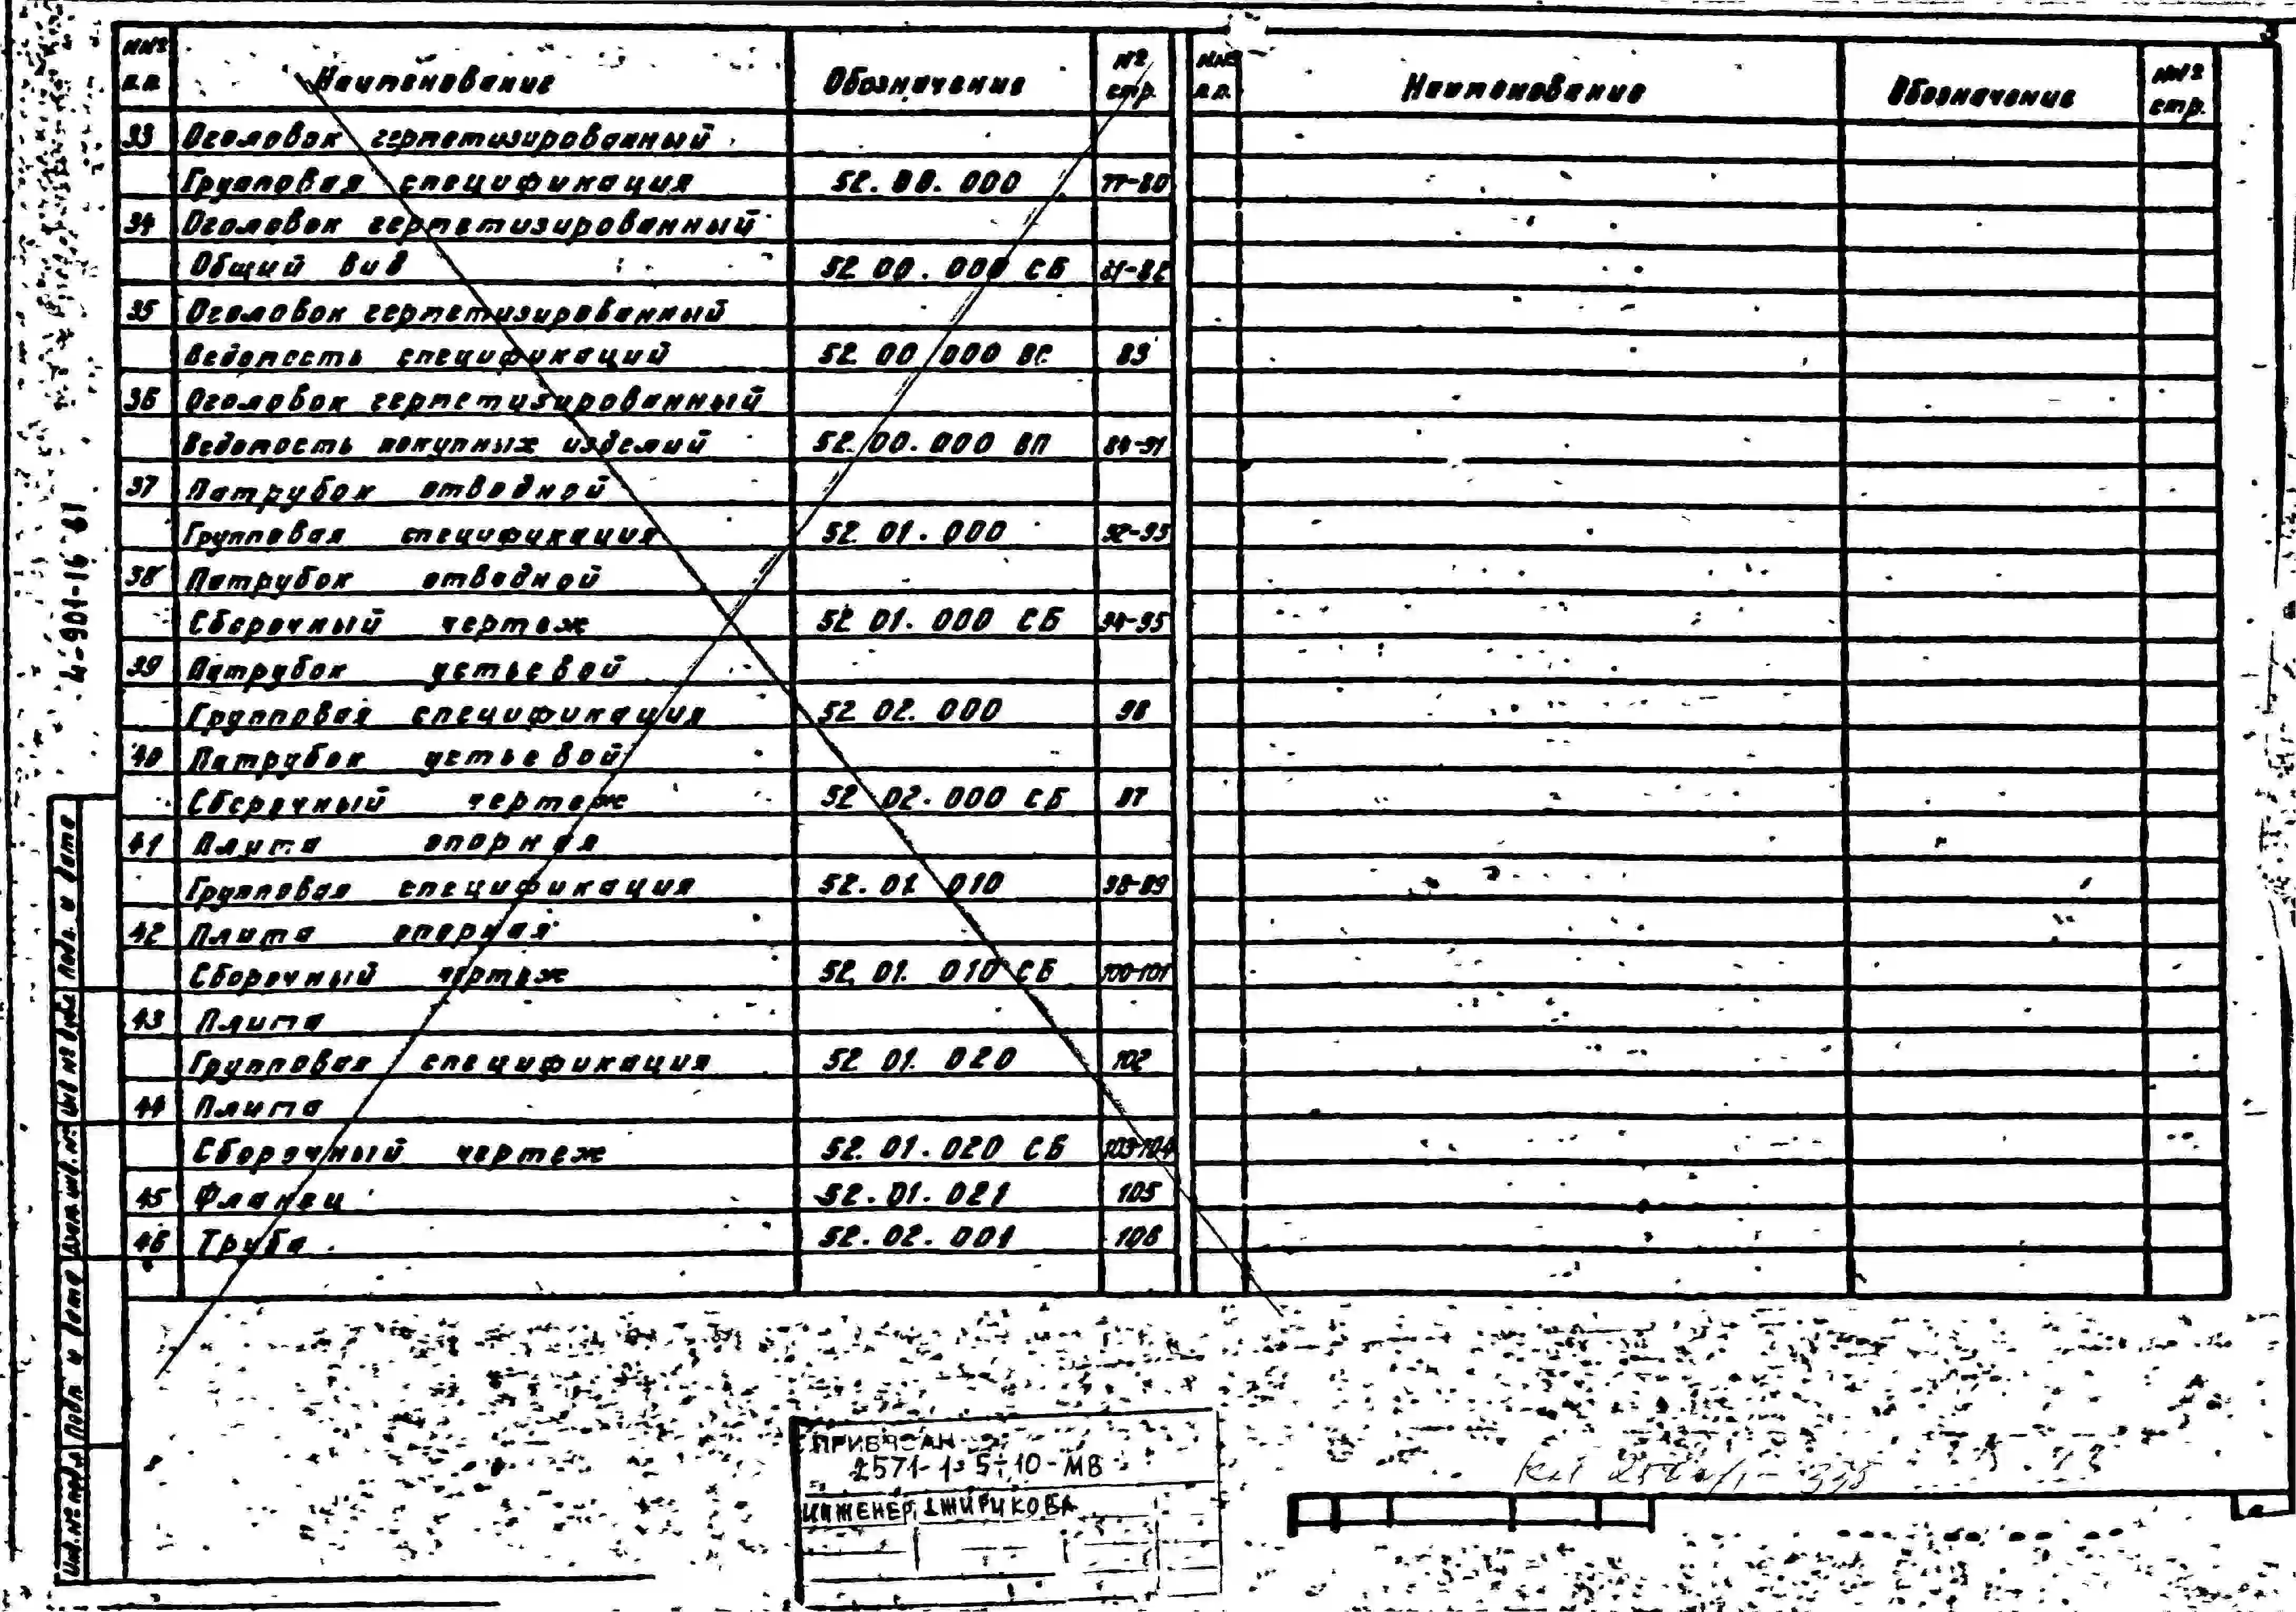 3
№№ п.п. Наименование Обозначение №№ стр. №№ п.п. Наименование Обозначение №№ стр.
33 Оголовок герметизированный
Групповая спецификация 52.00.000 77-80
34 Оголовок герметизированный
Общий вид 52.00.000 СБ 81-82
35 Оголовок герметизированный
Ведомость спецификаций 52.00.000 ВС 83
36 Оголовок герметизированный
Ведомость покупных изделий 52.00.000 ВП 84-91
37 Патрубок отводной
Групповая спецификация 52.01.000 92-93
38 Патрубок отводной
Сборочный чертеж 52.01.000 СБ 94-95
39 Патрубок устьевой
Групповая спецификация 52.02.000 96
40 Патрубок устьевой
Сборочный чертеж 52.02.000 СБ 97
41 Плита опорная
Групповая спецификация 52.01.010 98-99
42 Плита опорная
Сборочный чертеж 52.01.010 СБ 100-101
43 Плита
Групповая спецификация 52.01.020 102
44 Плита
Сборочный чертеж 52.01.020 СБ 103-104
45 Фланец 52.01.021 105
46 Труба 52.02.001 106
4-901-16
Подп. и дата
Инв.№ дубл.
Взам.инв.№
Подп. и дата
Инв.№ подл.
ПРИВЯЗАН
2571-1
10-МВ
ИНЖЕНЕР